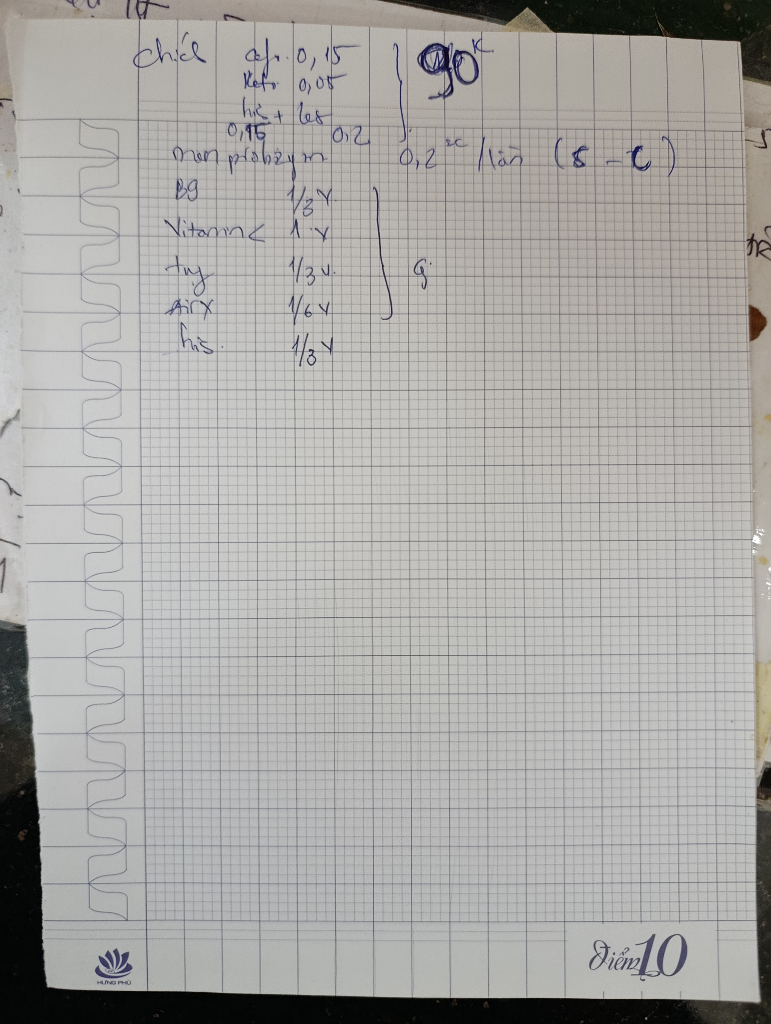 chích cefr. 0,15
Keto 0,05
90K
his +
0,15 0,2
men probzym 0,2cc /lần (S - C)
B9 1/3 v.
Vitamin C 1 v
1/3 v.
AirX 1/6 v
his. 1/3 v
HƯNG PHÚ
Điểm 10